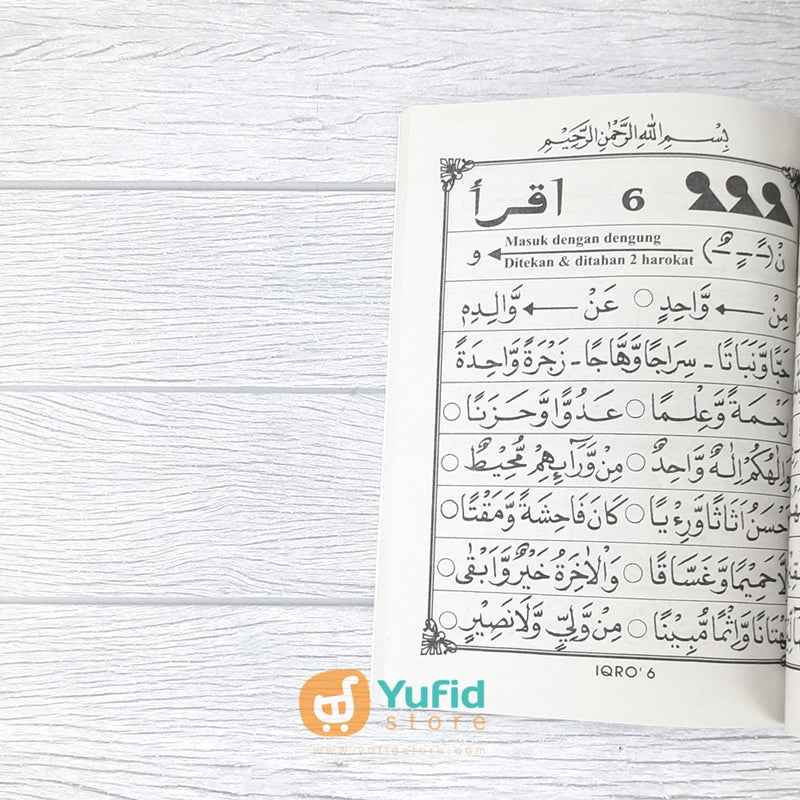 بِسْمِ اللهِ الرَّحْمٰنِ الرَّحِيْمِ
6 اقرأ
نْ (ـًـ ـٍـ ـٌـ) Masuk dengan dengung و
Ditekan & ditahan 2 harokat
مِنْ وَّاحِدٍ ○ عَنْ وَّالِدِهٖ
حَبًّا وَّنَبَاتًا - سِرَاجًا وَّهَّاجًا - زَجْرَةً وَّاحِدَةً
رَحْمَةً وَّعِلْمًا ○ عَدُوًّا وَّحَزَنًا ○
وَاِلٰهُكُمْ اِلٰهٌ وَّاحِدٌ ○ مِنْ وَّرَآءِهِمْ مُّحِيْطٌ ○
اَحْسَنُ اَثَاثًا وَّرِءْيًا ○ كَانَ فَاحِشَةً وَّمَقْتًا ○
حَمِيْمًا وَّغَسَّاقًا ○ وَالْاٰخِرَةُ خَيْرٌ وَّاَبْقٰى ○
بُهْتَانًا وَّاِثْمًا مُّبِيْنًا ○ مِنْ وَّلِيٍّ وَّلَا نَصِيْرٍ ○
IQRO' 6
Yufid
store
www.yufidstore.com